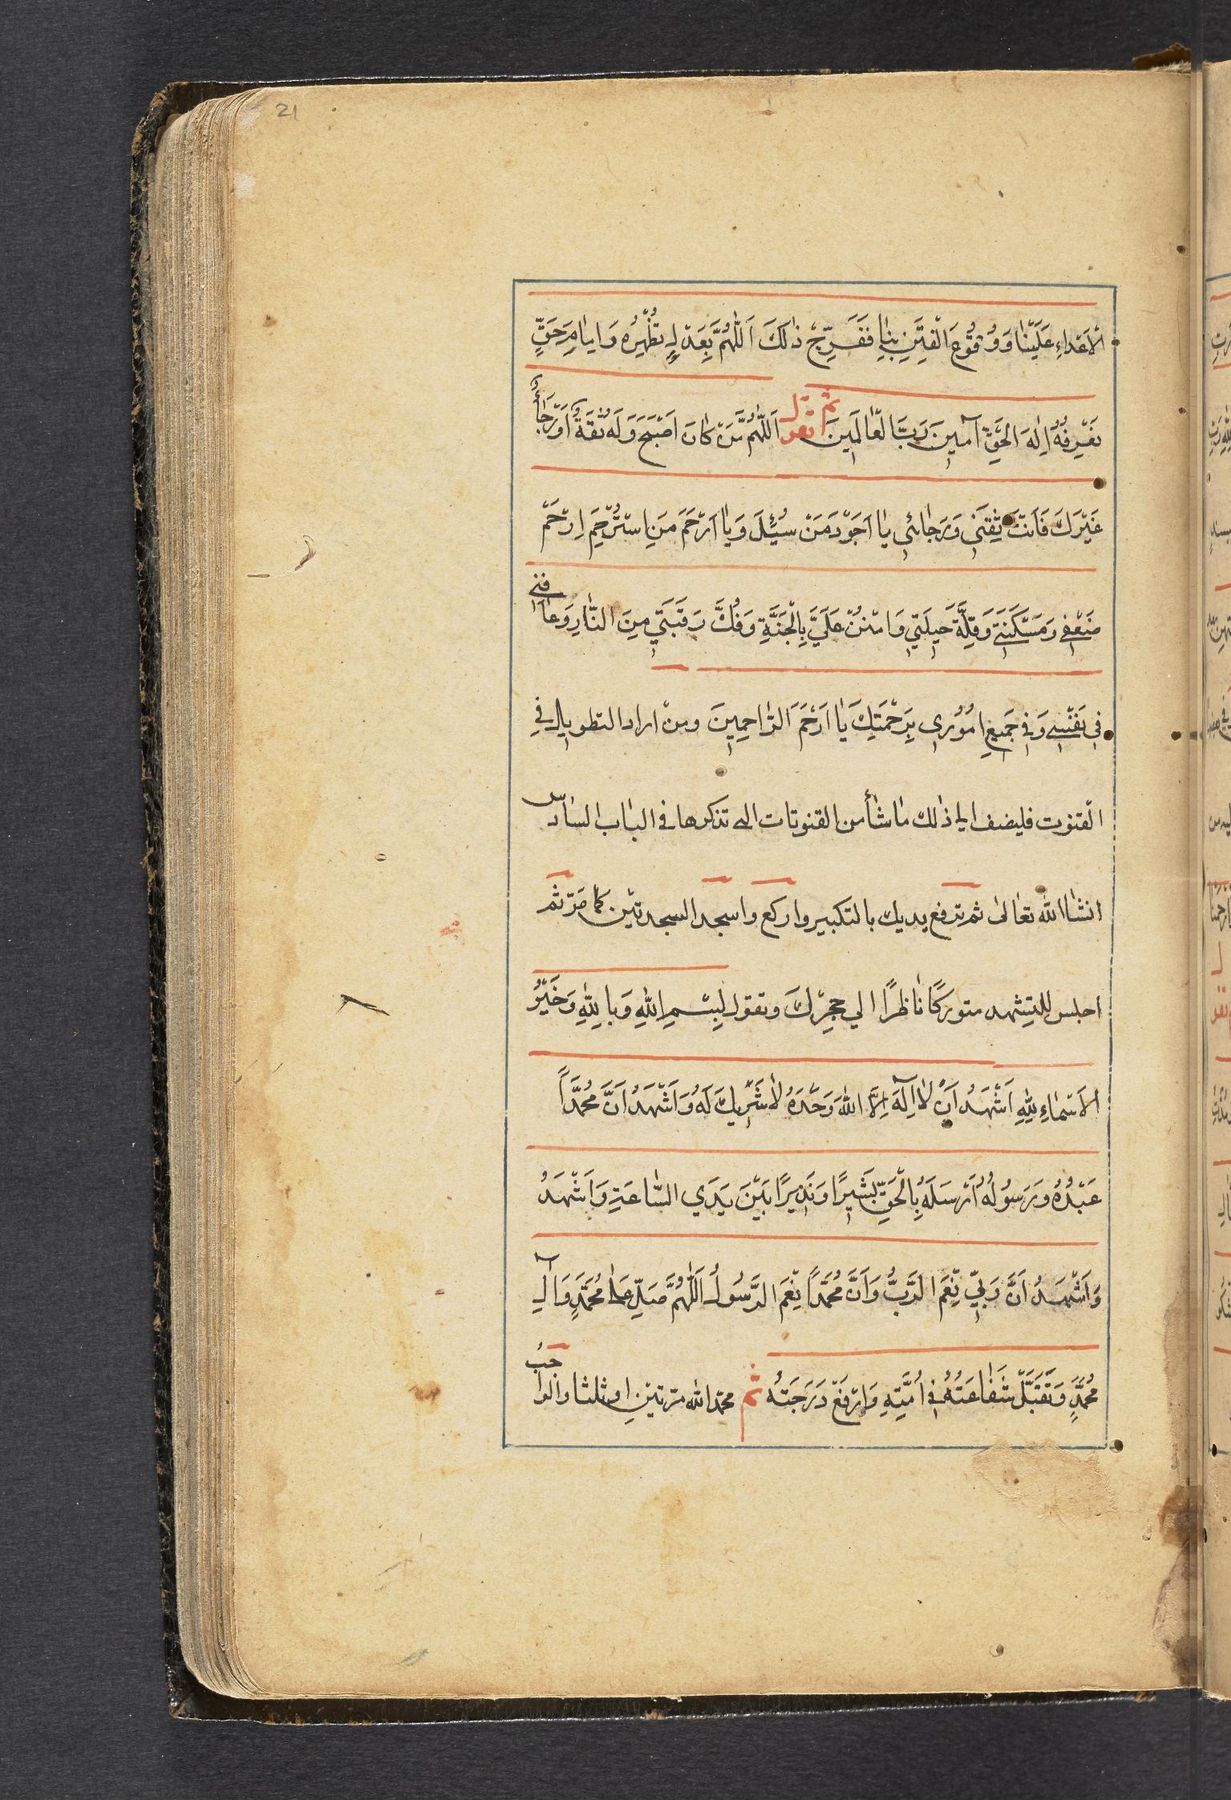 21
الْاَعْدٰاءِ عَلَيْنٰا وَ وُقُوعَ الْفِتَنِ بِنٰا فَفَرِّجْ ذٰلِكَ اَللّٰهُمَّ بِعَدْلٍ تُظْهِرُهُ وَ اِمٰامِ حَقٍّ
نَعْرِفُهُ اِلٰهَ الْحَقِّ آمِينَ رَبَّ الْعٰالَمِينَ ثم تقول اَللّٰهُمَّ مَنْ كٰانَ اَصْبَحَ وَ لَهُ ثِقَةٌ اَوْ رَجٰاءٌ
غَيْرُكَ فَاَنْتَ ثِقَتِي وَ رَجٰائِي يٰا اَجْوَدَ مَنْ سُئِلَ وَ يٰا اَرْحَمَ مَنِ اسْتُرْحِمَ اِرْحَمْ
ضَعْفِي وَ مَسْكَنَتِي وَ قِلَّةَ حِيلَتِي وَ امْنُنْ عَلَيَّ بِالْجَنَّةِ وَ فُكَّ رَقَبَتِي مِنَ النّٰارِ وَ عٰافِنِي
فِي نَفْسِي وَ فِي جَمِيعِ اُمُورِي بِرَحْمَتِكَ يٰا اَرْحَمَ الرّٰاحِمِينَ ومن اراد التطويل في
القنوت فليضف الى ذالك ماشأ من القنوتات التى تذكرها في الباب السادس
انشاالله تعالى ثم ترفع يديك بالتكبير واركع واسجد السجدتين كما مرّ ثم
اجلس للتشهد متوركًا ناظرًا الي حجرك وتقول بِسْمِ اللهِ وَ بِاللهِ وَ خَيْرُ
الْاَسْمٰاءِ لِلّٰهِ اَشْهَدُ اَنْ لٰا اِلٰهَ اِلَّا اللهُ وَحْدَهُ لٰا شَرِيكَ لَهُ وَ اَشْهَدُ اَنَّ مُحَمَّداً
عَبْدُهُ وَ رَسُولُهُ اَرْسَلَهُ بِالْحَقِّ بَشِيرًا وَ نَذِيرًا بَيْنَ يَدَيِ السّٰاعَةِ وَ اَشْهَدُ
وَ اَشْهَدُ اَنَّ رَبِّي نِعْمَ الرَّبُّ وَ اَنَّ مُحَمَّداً نِعْمَ الرَّسُولُ اَللّٰهُمَّ صَلِّ عَلٰى مُحَمَّدٍ وَ آلِ
مُحَمَّدٍ وَ تَقَبَّلْ شَفٰاعَتَهُ فِي اُمَّتِهِ وَ ارْفَعْ دَرَجَتَهُ ثم تحمد الله مرّتين او ثلثا والواجب